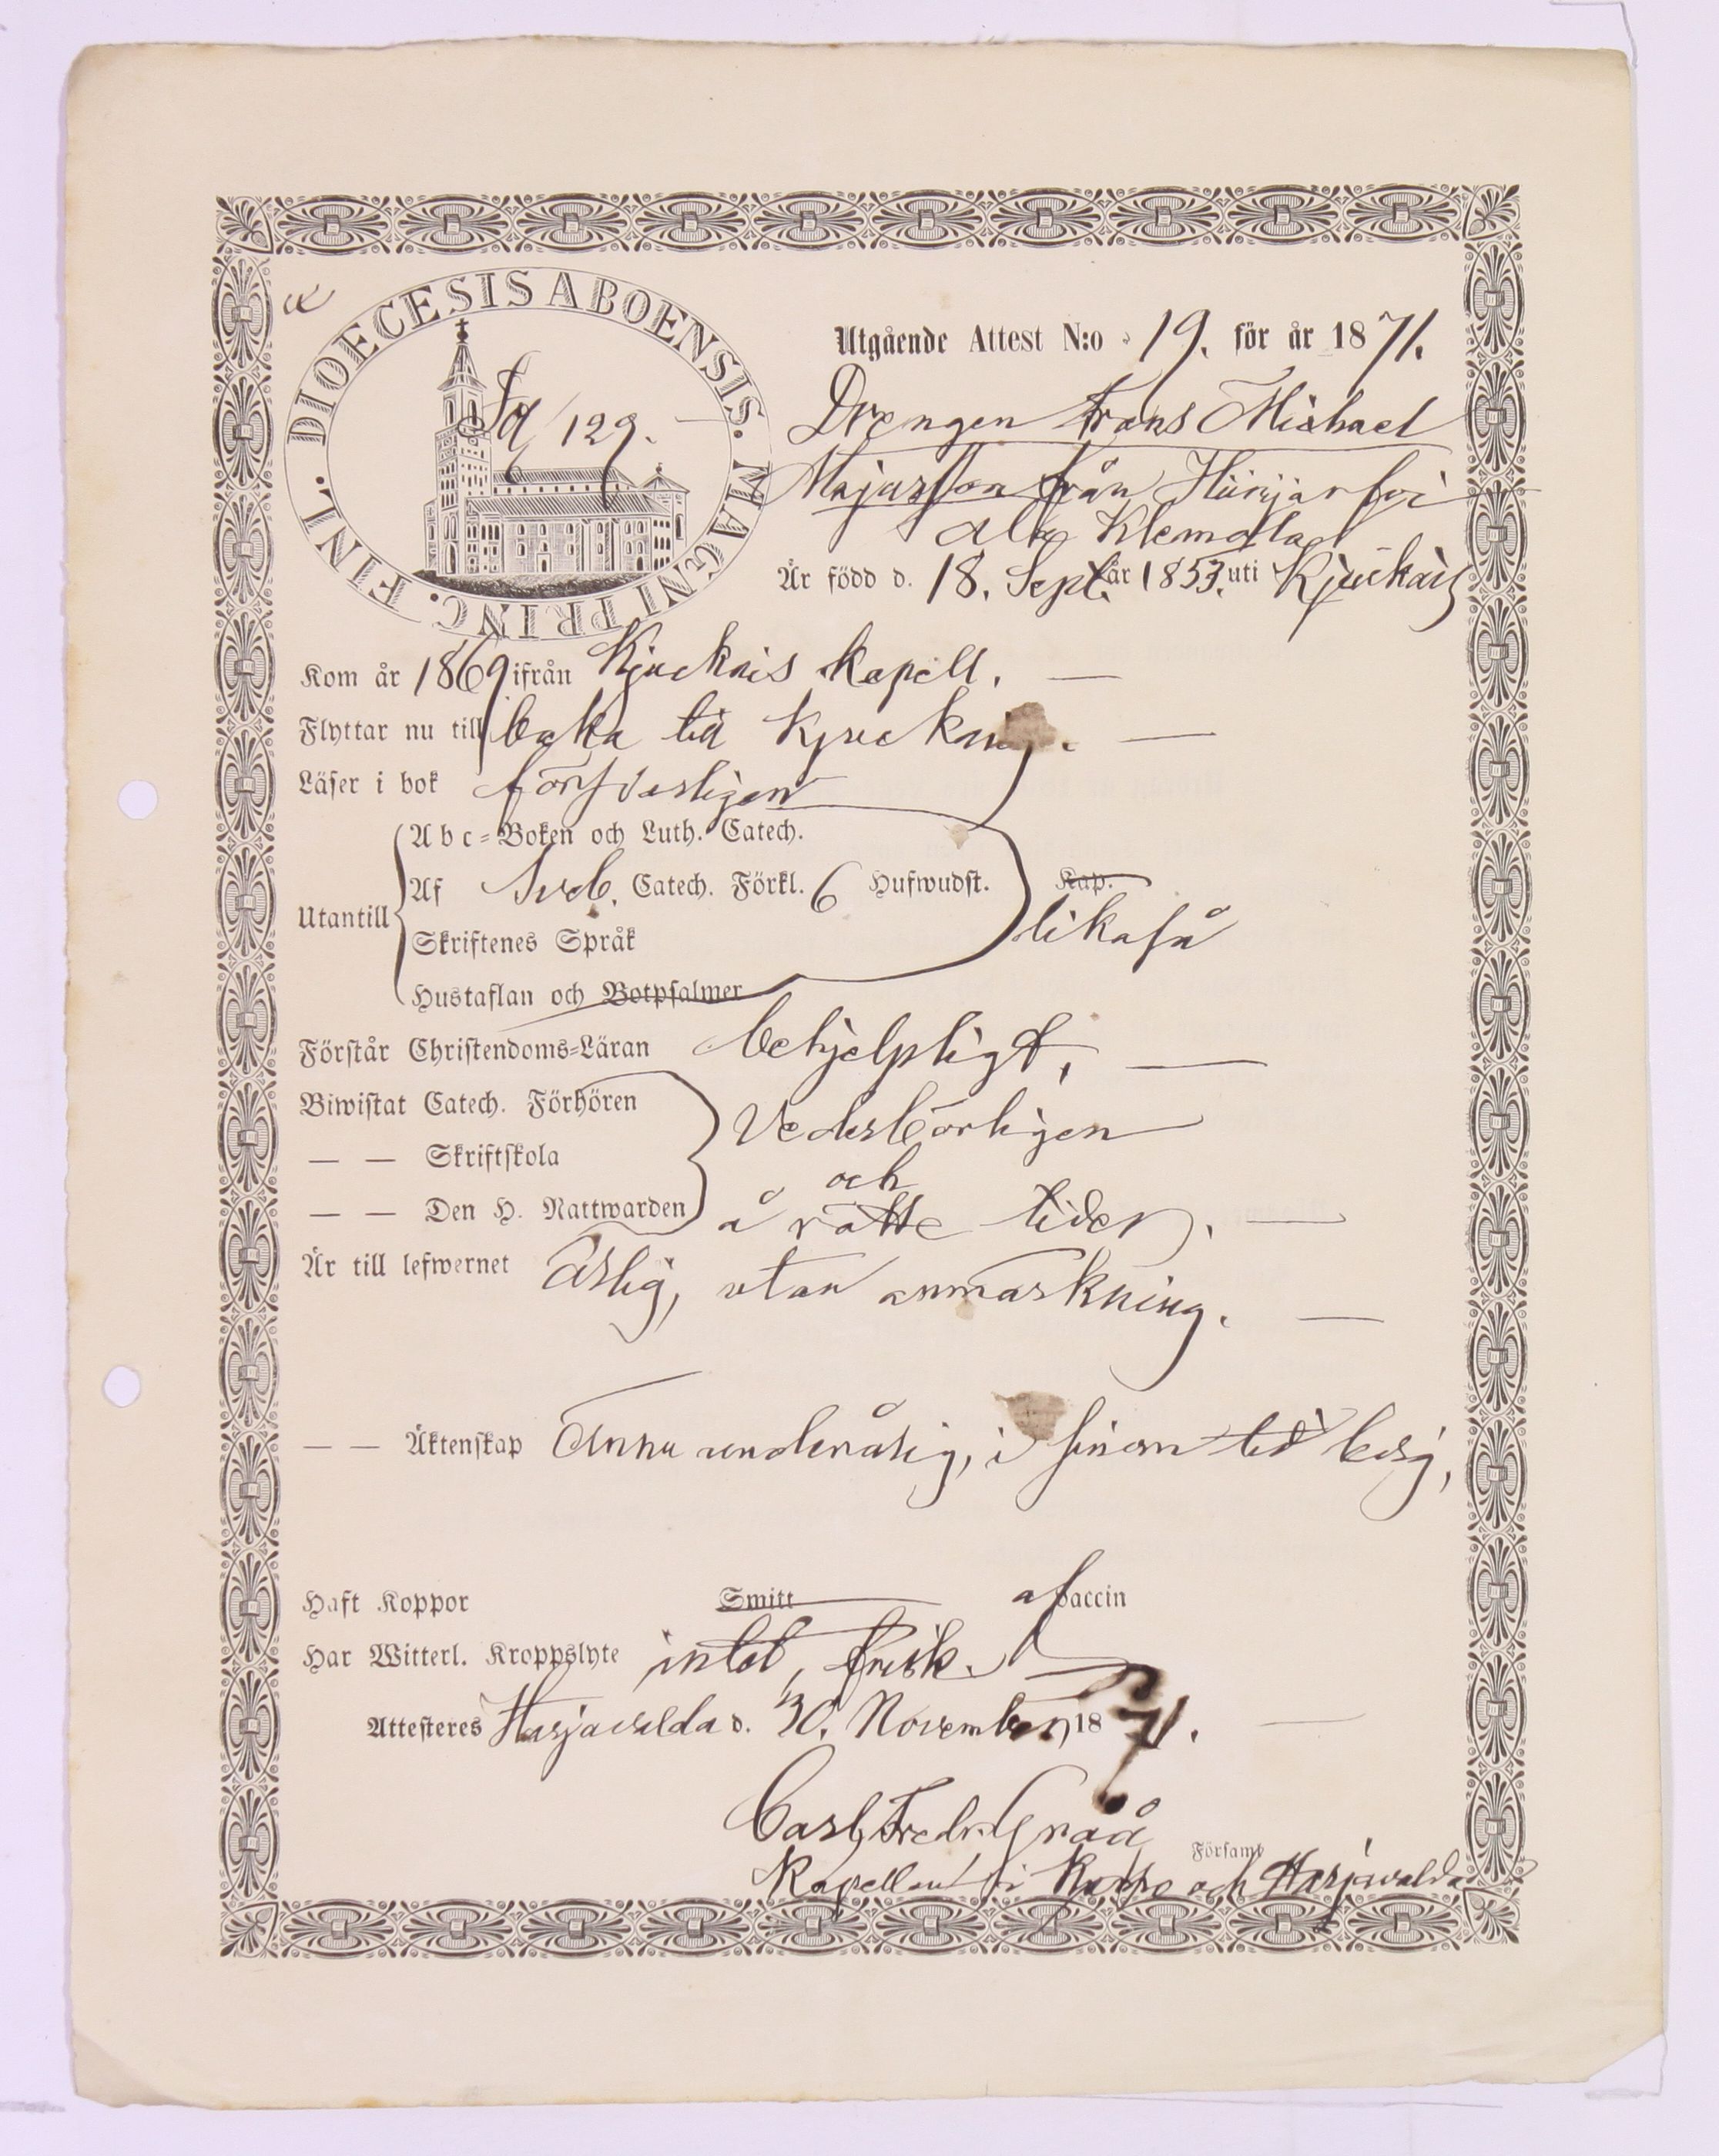 DIOECESIS ABOENSIS. MAGNI PRINC. FINL.
129.
Utgående Attest N:o 19. för år 1871.
Drengen Frans Michael
Majasson från Hiirijärfvi
ala Klemola
Är född d. 18. Sept. år 1853. uti Kjuckais
Kom år 1869 ifrån Kjuckais kapell. —
Flyttar nu till baka till Kjuckais. —
Läser i bok försvarligen
Utantill
Abc-Boken och Luth. Catech.
Af Sveb. Catech. Förkl. 6 Hufwudst. Kap.
Skriftenes Språk
likaså
Hustaflan och Botpsalmer
Förstår Christendoms-Läran behjelpligt. —
Biwistat Catech. Förhören
— — Skriftskola
— — Den H. Nattwarden
Vederbörligen
och
å rätte tider. —
Är till lefwernet ärlig, utan anmärkning. —
— — Äktenskap ännu underårig, i sinom tid ledig,
Haft Koppor Smitt af vaccin
Har Witterl. Kroppslyte intet, frisk.
Attesteres Harjavalda d. 30. November 1871. —
Carl Fredr. Gråå
Församl
Kapellan i Kumo och Harjavalda